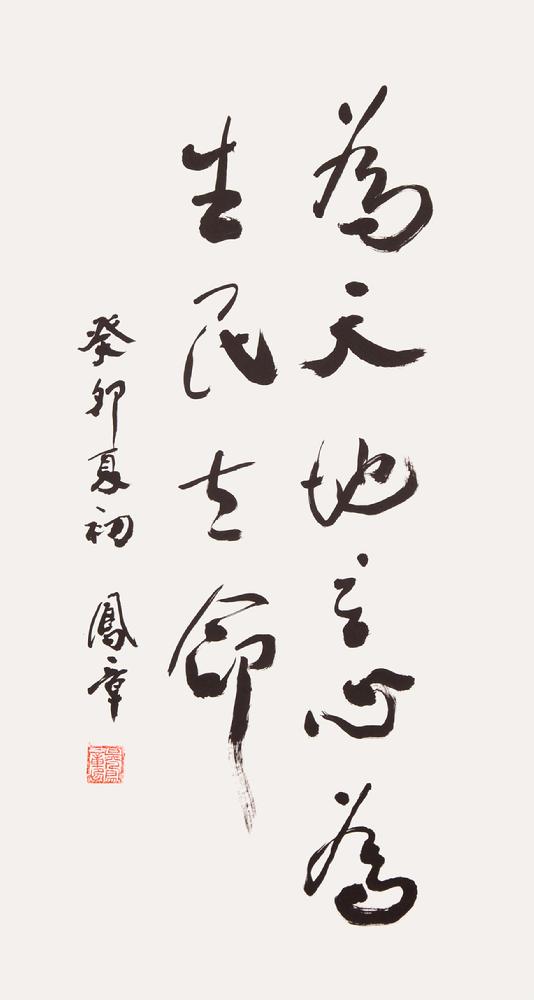 為天地立心為
生民立命
癸卯夏初 鳳章